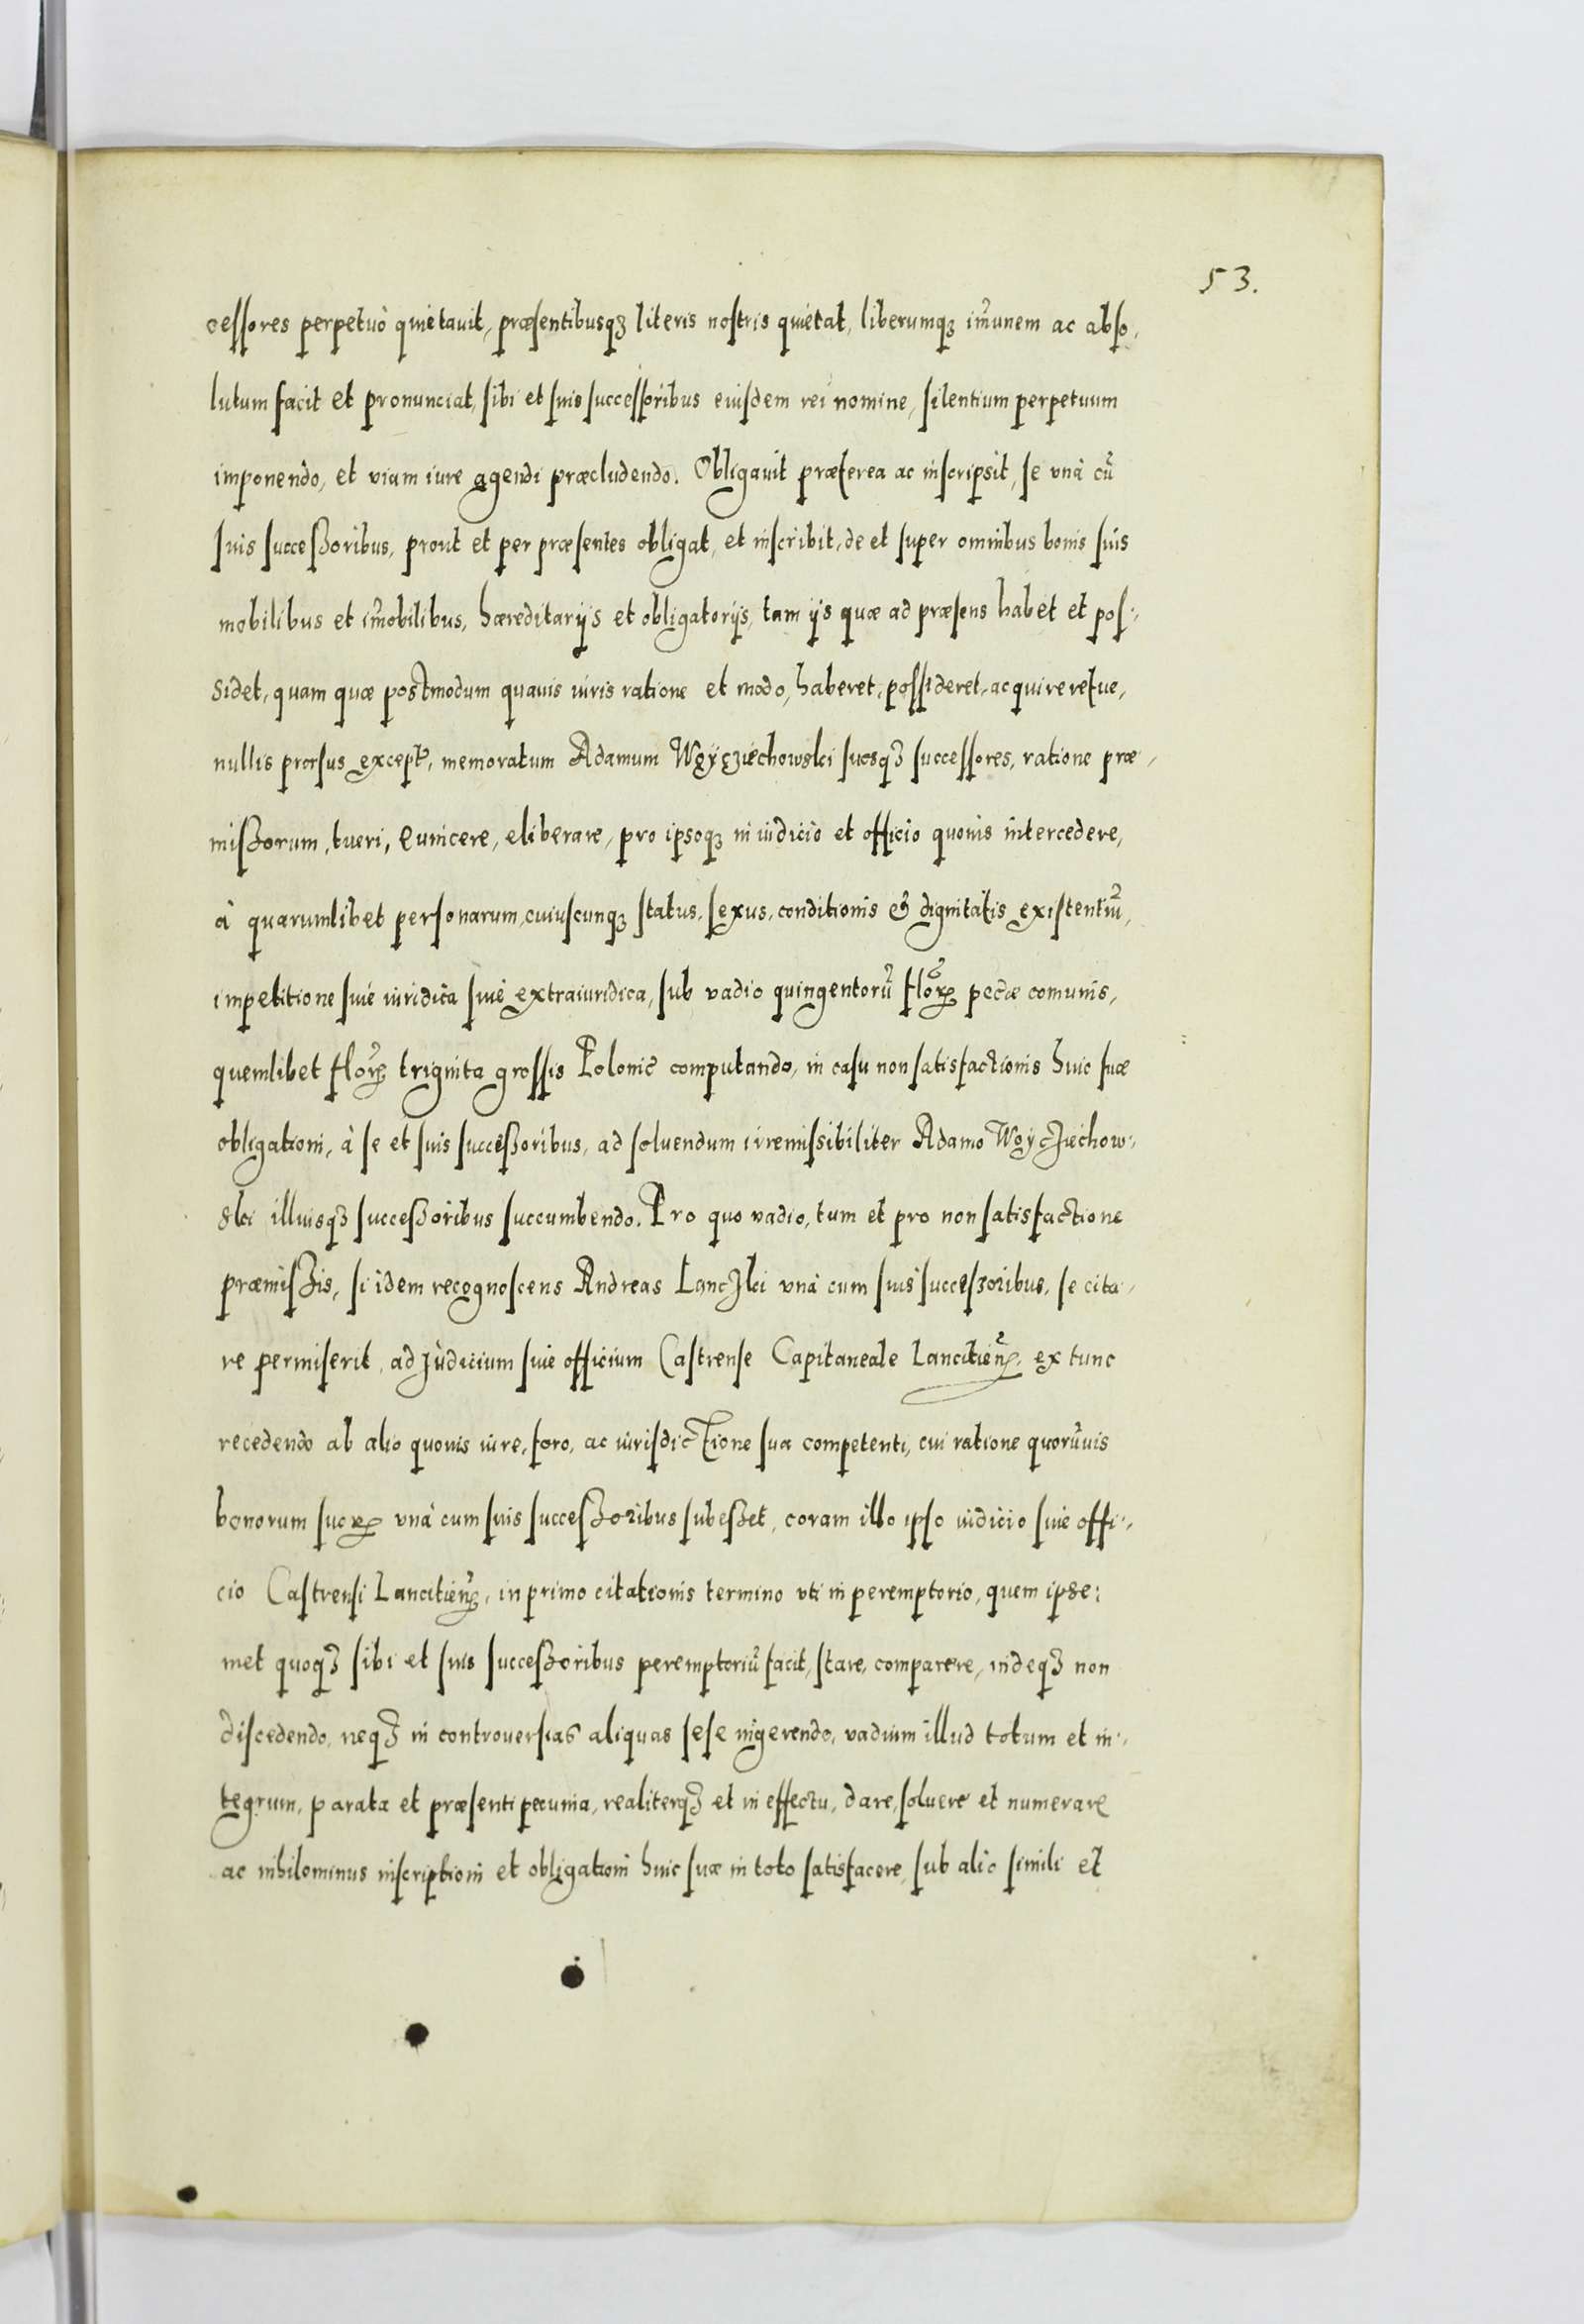 53.
cessores perpetuò quietauit, præsentibusqꝫ literis nostris quietat, liberumqꝫ im̃unem ac abso-
lutum facit et pronunciat, sibi et suis successoribus eiusdem rei nomine, silentium perpetuum
imponendo, et viam iure agendi præcludendo. Obligauit præterea ac inscripsit, se vnà cũ
suis successoribus, prout et per præsentes obligat, et inscribit, de et super omnibus bonis suis
mobilibus et im̃obilibus, hæreditarijs et obligatorijs, tam ijs quæ ad præsens habet et pos-
sidet, quam quæ postmodum quauis iuris ratione et modo, haberet, possideret, acquireretue,
nullis prorsus except̃, memoratum Adamum Woycziechowski suosqꝫ successores, ratione præ-
missorum, tueri, euincere, eliberare, pro ipsoqꝫ in iudicio et officio quouis intercedere,
à quarumlibet personarum, cuiuscunqꝫ status, sexus, conditionis et dignitatis existentiũ,
impetitione siue iuridica siue extraiuridica, sub vadio quingentorũ floꝝ pec̃æ comunis,
quemlibet floꝝ triginta grossis Polonic̃ computando, in casu non satisfactionis huic suæ
obligationi, à se et suis successoribus, ad soluendum irremissibiliter Adamo Woycziechow-
ski illiusqꝫ successoribus succumbendo. Pro quo vadio, tum et pro non satisfactione
præmissis, si idem recognoscens Andreas Lanczki vnà cum suis successoribus, se cita-
re permiserit, ad Judicium siue officium Castrense Capitaneale Lancitien̄, ex tunc
recedendo ab alio quouis iure, foro, ac iurisdictione sua competenti, cui ratione quorũuis
bonorum suoꝝ vnà cum suis successoribus subesset, coram illo ipso iudicio siue offi-
cio Castrensi Lancitien̄, in primo citationis termino vti in peremptorio, quem ipse-
met quoqꝫ sibi et suis successoribus peremptoriũ facit, stare, comparere, indeqꝫ non
discedendo, neqꝫ in controuersias aliquas sese ingerendo, vadium illud totum et in-
tegrum, parata et præsenti pecunia, realiterqꝫ et in effectu, dare, soluere et numerare
ac nihilominus inscriptioni et obligationi huic suæ in toto satisfacere, sub alio simili et